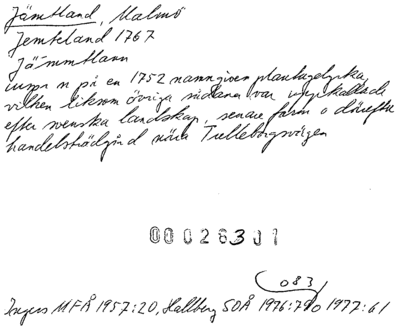 Jämtland, Malmö
Jemteland 1767
Jä´mmtlann
urspr n på en 1752 namngiven plantagelycka,
vilken liksom övriga sådana var uppkallade
efter svenska landskap, senare farm o därefter
handelsträdgård nära Trelleborgsvägen
0002630 1
083
Ingers MFÅ 1957:20, Hallberg SOÅ 1976:79 o 1977:61